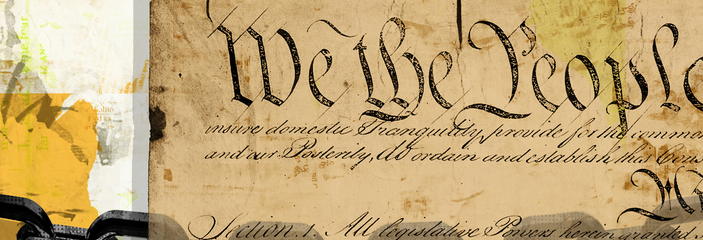 We the People
insure domestic Tranquility, provide for the common
and our Posterity, do ordain and establish this Cons
Section. 1. All legislative Powers herein granted